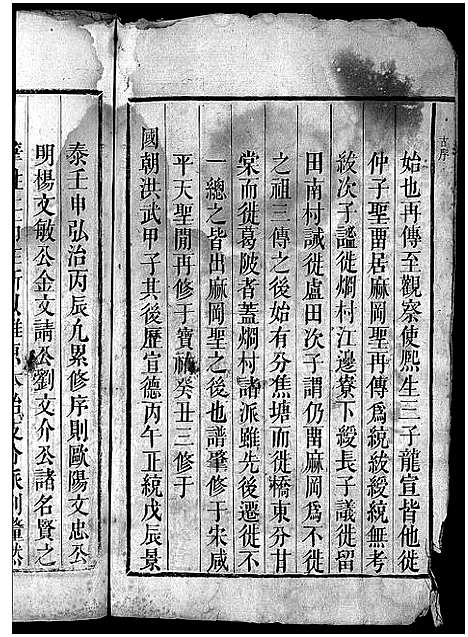 古序
始也再傳至觀察使熈生三子龍宣皆他徙
仲子聖畱居麻岡聖再傳爲統紱綬統無考
紱次子謐徙烱村江邊寮下綬長子議徙留
田南村誠徙盧田次子謂仍畱麻岡爲不徙
之祖三傳之後始有分焦塘而徙橋東分甘
棠而徙葛陂者蓋烱村諸派雖先後遷徙不
一總之皆出麻岡聖之後也譜肇修于宋咸
平天聖開再修于寶祐癸丑三修于
國朝洪武甲子其後歷宣德丙午正統戊辰景
泰壬申弘治丙辰凡累修序則歐陽文忠公
明楊文敏公金文請公劉文介公諸名賢之